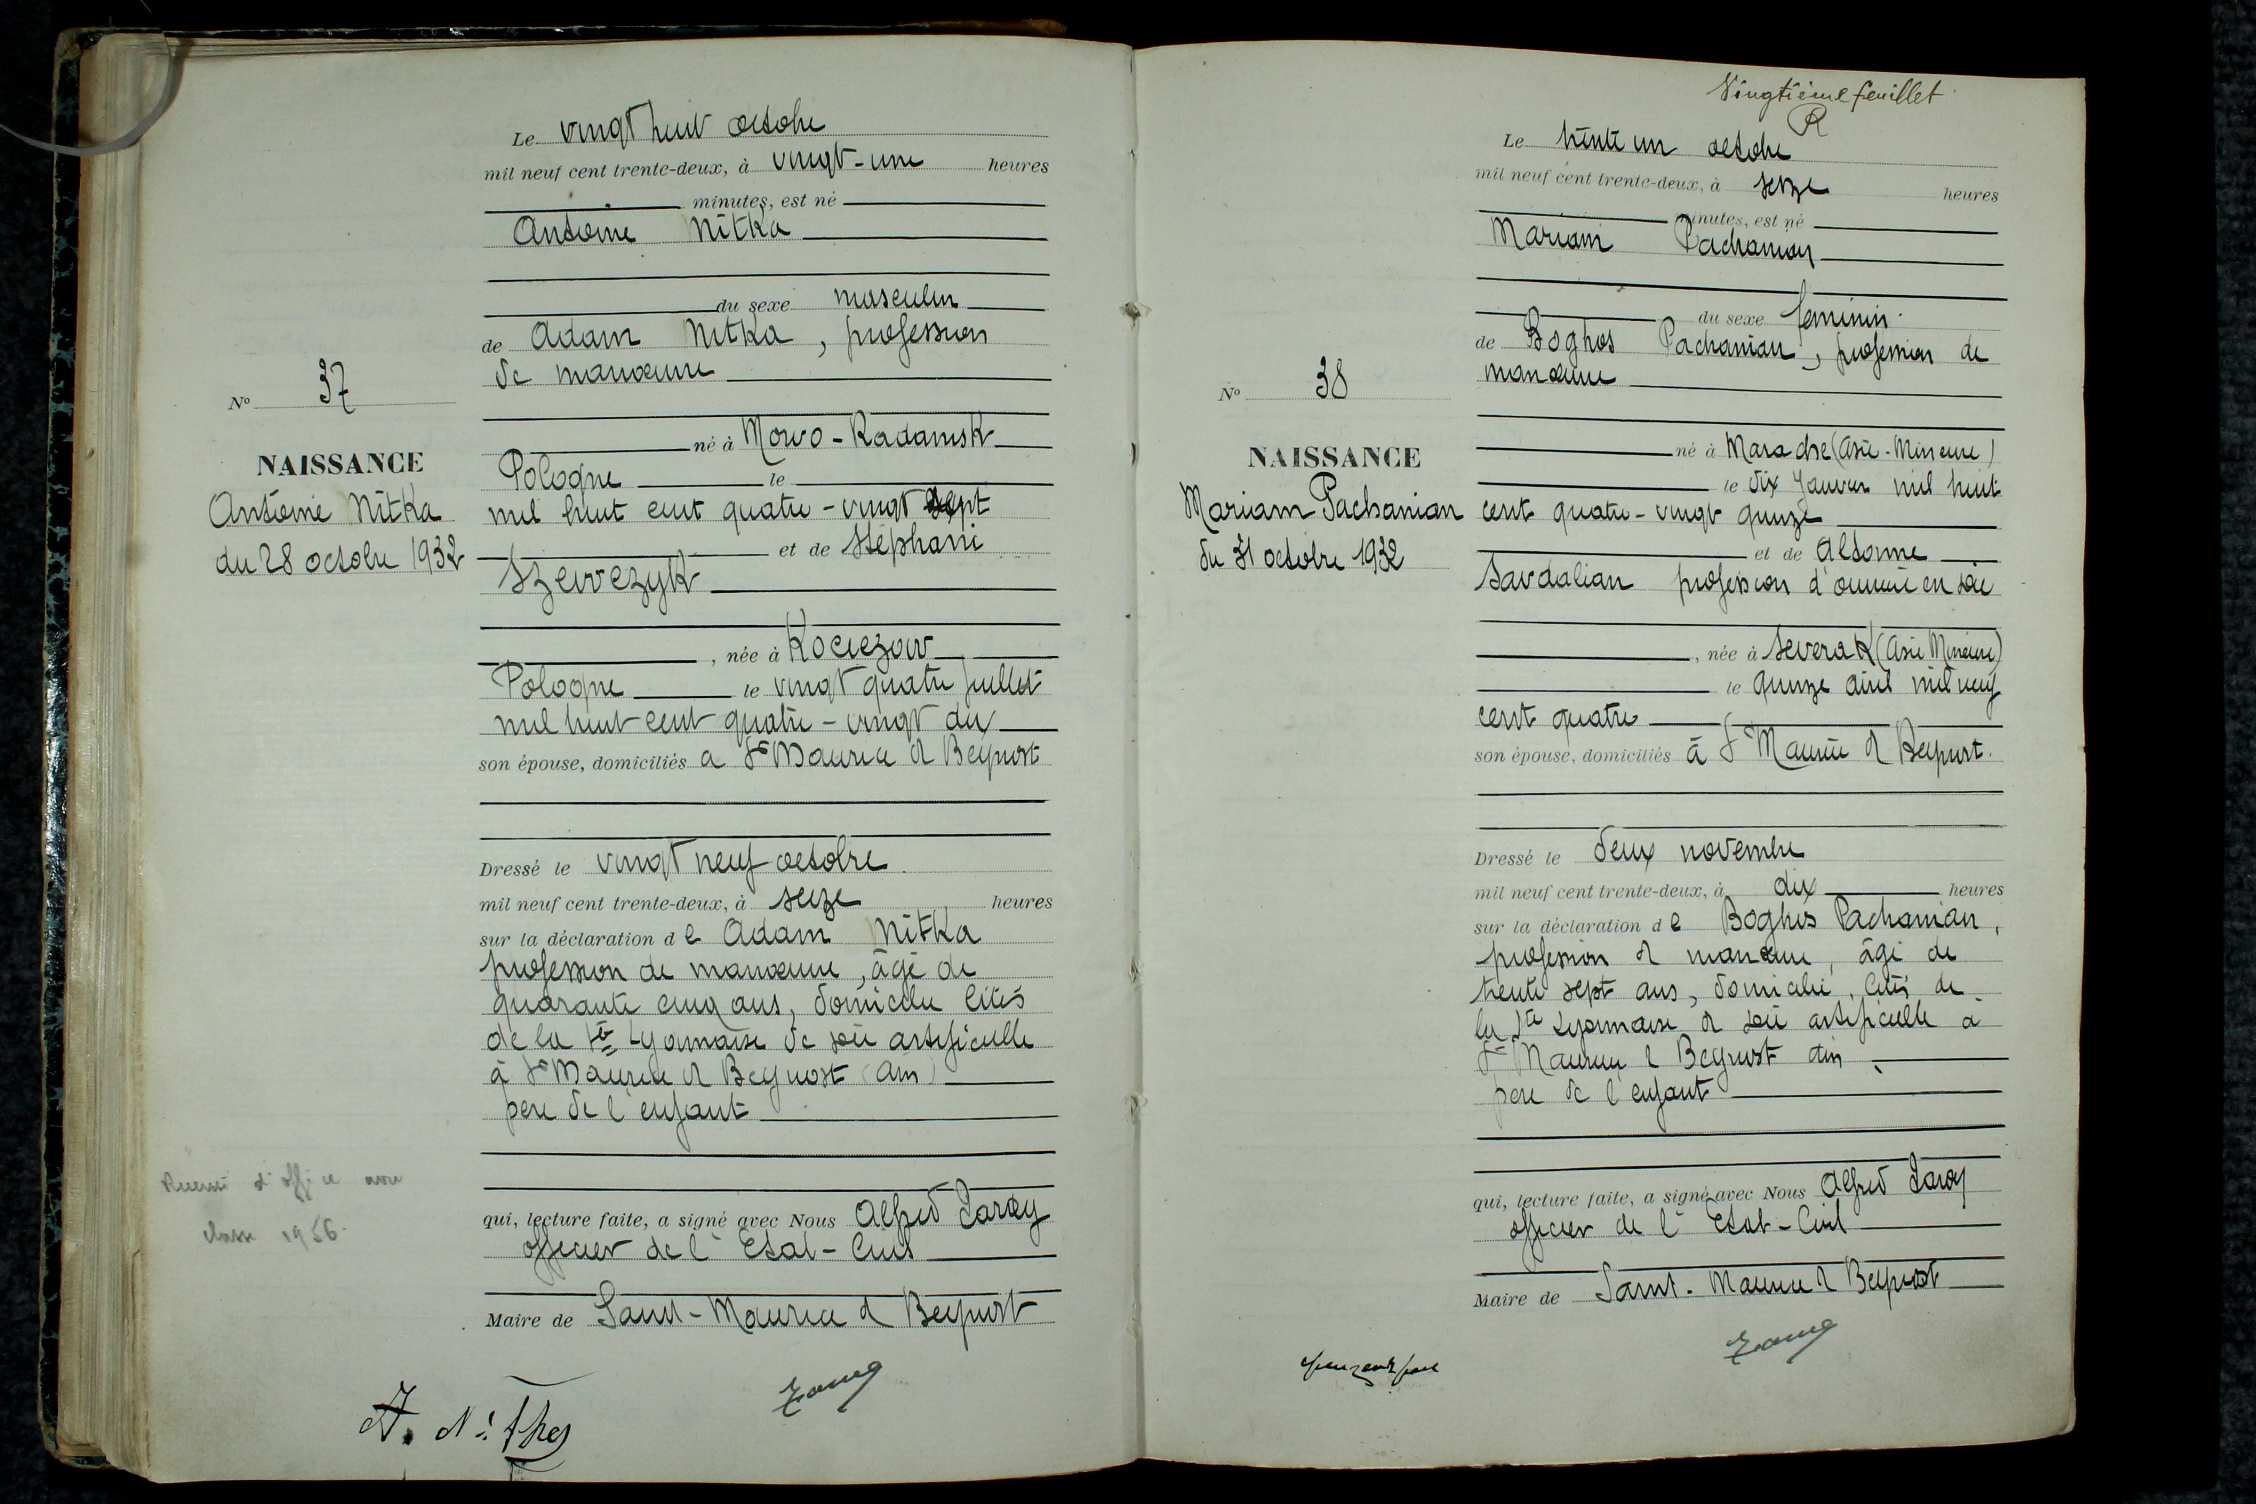 Le vingt huit octobre
mil neuf cent trente-deux, à vingt-une heures
minutes, est né
Antoine Nitka
du sexe masculin
de Adam Nitka, profession
de manœuvre
né à Nowo-Radamsk
Pologne le
mil huit cent quatre-vingt sept
et de Stéphani
Szewezyk
, née à Kociezow
Pologne le vingt quatre juillet
mil huit cent quatre-vingt dix
son épouse, domiciliés à St Maurice de Beynost
Dressé le vingt neuf octobre
mil neuf cent trente-deux, à seize heures
sur la déclaration de Adam Nitka
profession de manœuvre, âgé de
quarante cinq ans, domicilié Cités
de la Sté Lyonnaise de soie artificielle
à St Maurice de Beynost (Ain)
père de l'enfant
qui, lecture faite, a signé avec Nous Alfred
officier de l'Etat-Civil
Maire de Saint-Maurice de Beynost
No 37
NAISSANCE
Antoine Nitka
du 28 octobre 1932
d'office
classe 19
Vingtième feuillet
Le trente un octobre
mil neuf cent trente-deux, à seize heures
minutes, est né
Mariam Pachanian
du sexe féminin
de Boghos Pachanian, profession de
manœuvre
né à Marache (Asie-Mineure)
le dix Janvier mil huit
cent quatre-vingt quinze
et de Altoune
Savdalian profession d'ouvrière en soie
, née à Severak (Asie Mineure)
le quinze avril mil neuf
cent quatre
son épouse, domiciliés à St Maurice de Beynost.
Dressé le deux novembre
mil neuf cent trente-deux, à dix heures
sur la déclaration de Boghos Pachanian,
profession de manœuvre, âgé de
trente sept ans, domicilié, Cités de
la Sté Lyonnaise de soie artificielle à
St Maurice de Beynost Ain
père de l'enfant
qui, lecture faite, a signé avec Nous Alfred
officier de l'Etat-Civil
Maire de Saint-Maurice de Beynost
No 38
NAISSANCE
Mariam Pachanian
du 31 octobre 1932